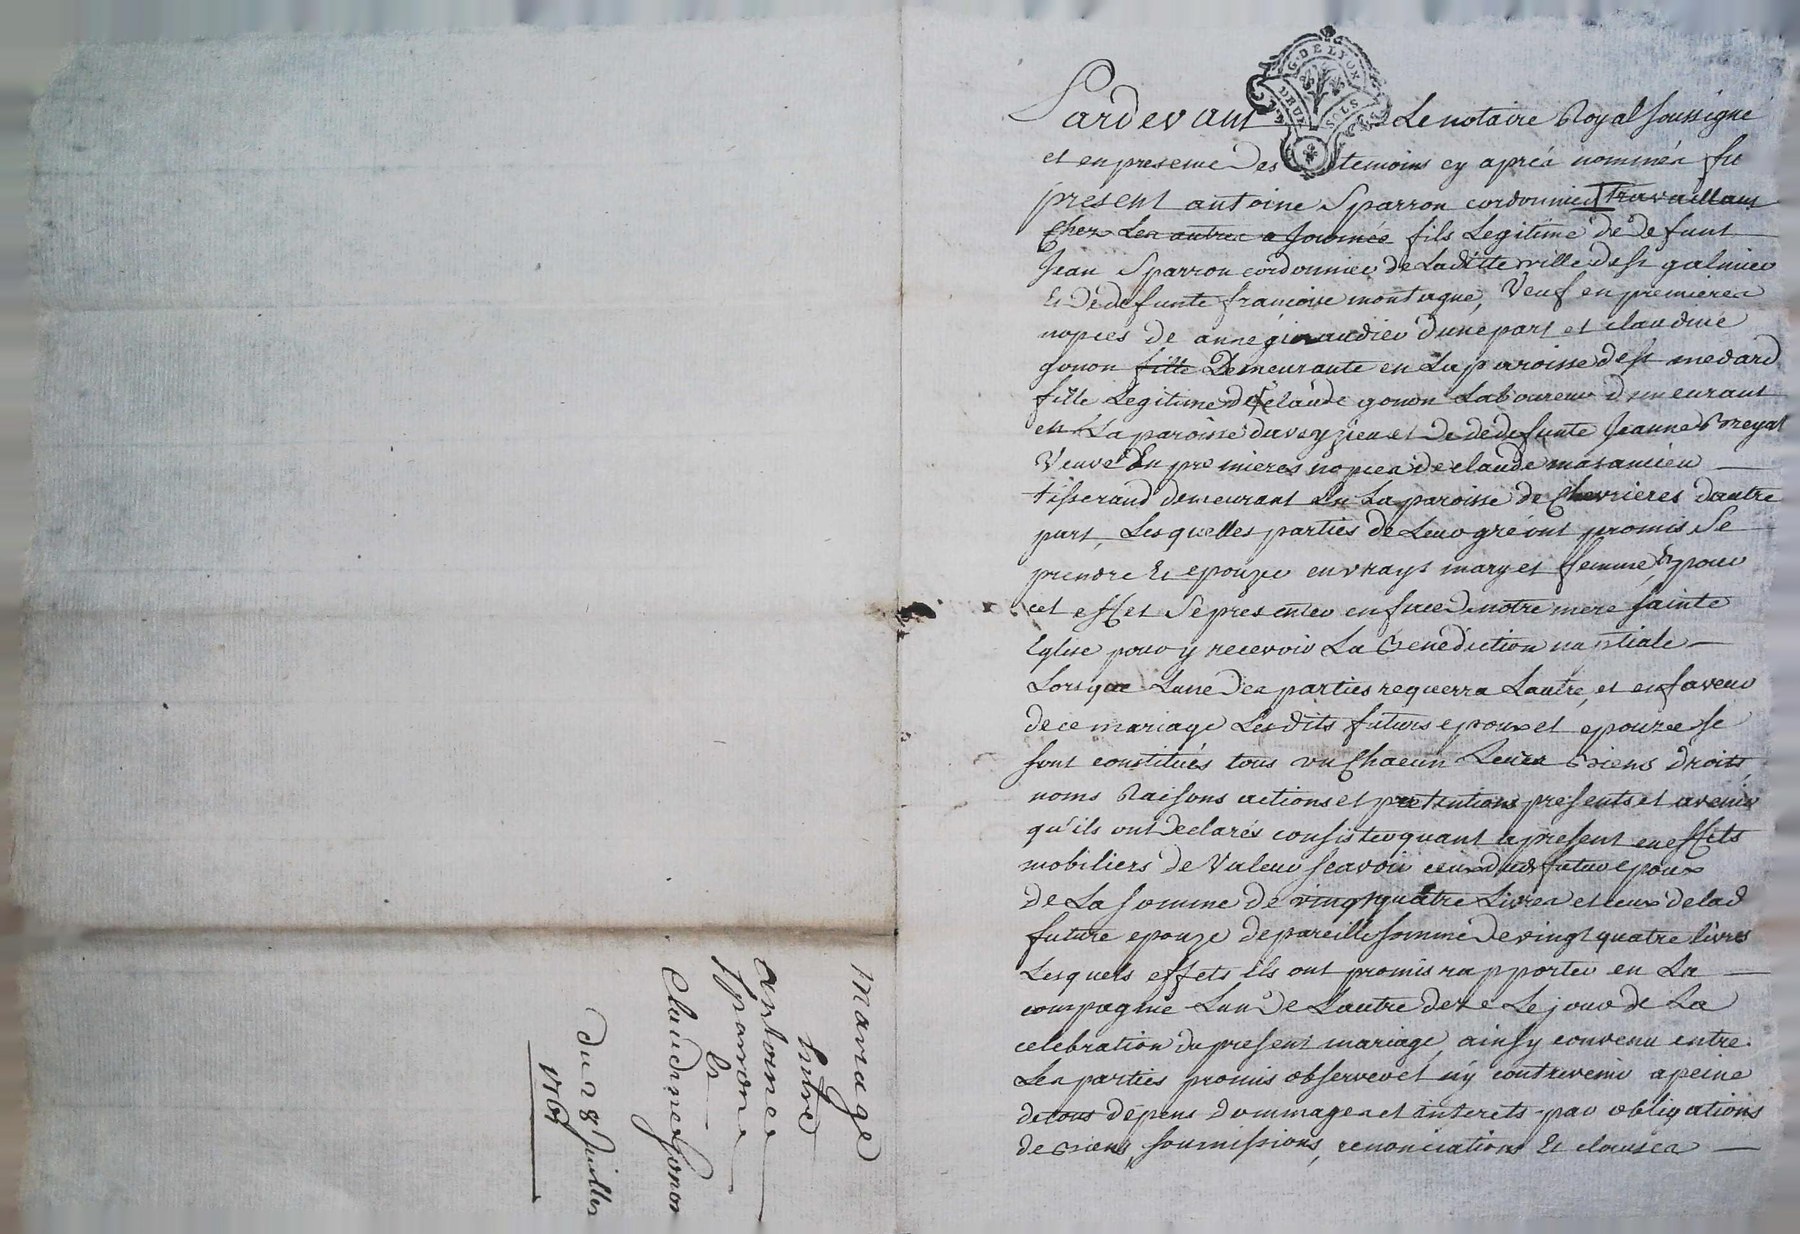 Mariage
Entre
Antoine
Sparron
Et
Claudine Gonon
Du 28 Juillet
1767
G. DE LYON
DEUX SOLS
Pardevant Le notaire Royal soussigné
et en presence Des temoins cy aprés nommés fut
present antoine Sparron cordonnier travaillant
Chez Les autres a Journée fils Legitime de defunt
Jean Sparron cordonnier de Laditte ville de st galmier
Et De defunte francoise montagne, Veuf en premieres
nopces de anne giraudier d'une part et claudine
gonon fille Demeurante en La paroisse de st medard
fille Legitime de claude gonon Laboureur demeurant
en La paroisse d'aveyzieu et De dedefunte Jeanne
Veuve En premieres nopces de claude
tisserand demeurant En La paroisse de Chevrieres dautre
part, Lesquelles parties de Leur gré ont promis Se
prendre Et epouzer en vrays mary et femme & pour
cet effet Se presenter en face de notre mere sainte
Eglise pour y recevoir La Benediction nuptiale
Lorsque Lune des parties requerra Lautre, et en faveur
de ce mariage Lesdits futurs epoux et epouze se
sont constitués tous un Chacun Leurs Biens droits,
noms Raisons actions et pretentions presents et avenir
qu'ils ont declarés consister quant a present en effets
mobiliers de Valeur scavoir ceux dud futur epoux
de La somme de vingt quatre Livres et ceux de lad
future epouze de pareille somme de vingt quatre livres
Lesquels effets ils ont promis rapporter en La
compagnie Lun de Lautre Le jour de La
celebration du present mariage, ainsy convenu entre
Les parties promis observer et n'y contrevenir a peine
de tous depens dommages et interets par obligations
de Biens, soumissions, renonciations Et clauses